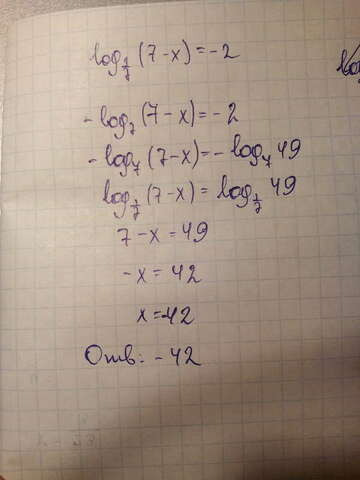 log_{1/7} (7-x) = -2
log
-log_7 (7-x) = -2
-log_7 (7-x) = -log_7 49
log_{1/7} (7-x) = log_{1/7} 49
7-x = 49
-x = 42
x = -42
Отв: -42